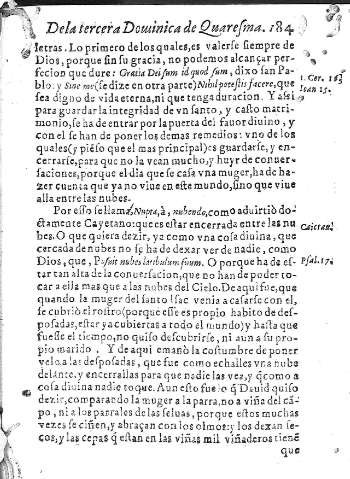 De la tercera Dominica de Quaresma. 184
letras. Lo primero de los quales, es valerse siempre de
Dios, porque sin su gracia, no podemos alcançar per-
feccion que dure: Gratia Dei sum id quod sum, dixo san Pa-
1. Cor. 15
blo: y Sine me (se dize en otra parte) Nihil potestis facere, que
Ioan 15.
sea digno de vida eterna, ni que tenga duracion. Y assi
para guardar la integridad de vn santo, y casto matri-
monio, se ha de entrar por la puerta del fauor diuino, y
con el se han de poner los demas remedios: vno de los
quales (y piẽso que el mas principal) es guardarse, y en-
cerrarse, para que no la vean mucho, y huyr de conuer-
saciones, porque el dia que se casa vna muger, ha de ha-
zer cuenta que ya no viue en este mundo, sino que viue
allà entre las nubes.
Por esso se llama Nupta, à, nubendo, como aduirtiò do-
ctamente Cayetano: que es estar encerrada entre las nu-
Caietan.
bes. O que quiera dezir, ya como vna cosa diuina, que
cercada de nubes no se ha de dexar ver de nadie, como
Dios, que, Posuit nubes latibulum suum. O porque ha de es-
Psal. 17.
tar tan alta de la conuersacion, que no han de poder to-
car a ella mas que a las nubes del Cielo. De aqui fue, que
quando la muger del santo Isac venia a casarse con el,
se cubriò el rostro (porque esse es propio habito de des-
posadas, estar ya cubiertas a todo el mundo) y hasta que
fuesse el tiempo, no quiso descubrirse, ni aun a su pro-
pio marido. Y de aqui emanò la costumbre de poner
velo a las desposadas, que fue como echalles vna nube
delante, y encerrallas para que nadie las vea, y q̃ como a
cosa diuina nadie toque. Aun esto fue lo q̃ Dauid quiso
dezir, comparando la muger a la parra, no a viña del cã-
po, ni a los parrales de las seluas, porque estos muchas
vezes se ciñen, y abraçan con los olmos: y los dexan se-
cos, y las cepas q̃ estan en las viñas mil viñaderos tienẽ
que